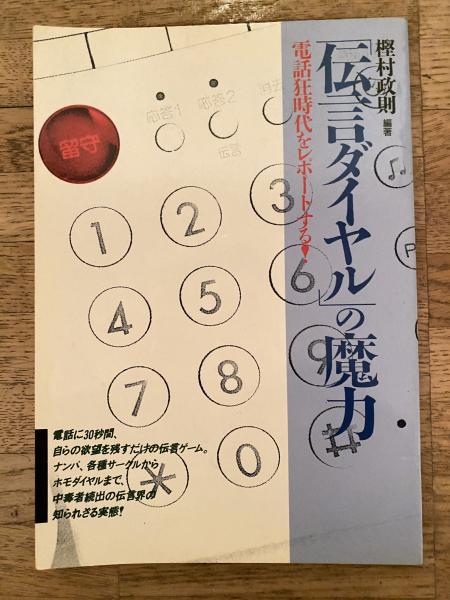 樫村政則 編著
「伝言ダイヤル」の魔力
電話狂時代をレポートする!
留守
応答1
応答2
消去
伝言
1
2
3
4
5
6
7
8
9
*
0
#
♫
P
電話に30秒間、
自らの欲望を残すだけの伝言ゲーム。
ナンパ、各種サークルから
ホモダイヤルまで、
中毒者続出の伝言界の
知られざる実態!